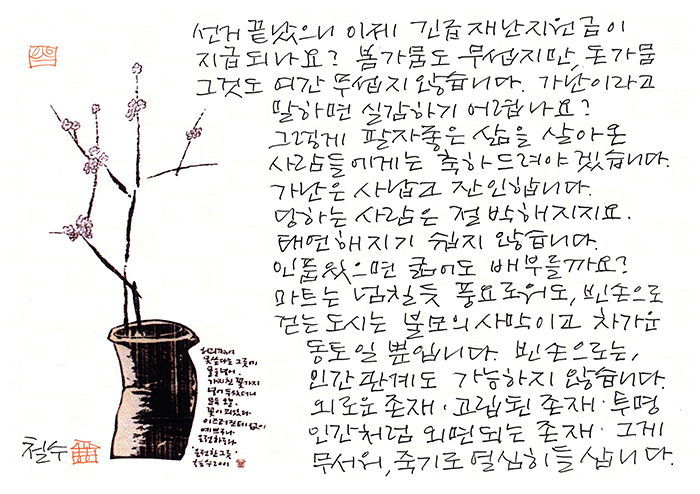 선거 끝났으니 이제 긴급 재난지원금이
지급되나요? 봄가뭄도 무섭지만, 돈가뭄
그것도 여간 무섭지 않습니다. 가난이라고
말하면 실감하기 어렵나요?
그렇게 팔자좋은 삶을 살아온
사람들에게는 축하드려야겠습니다.
가난은 사납고 잔인합니다.
당하는 사람은 절박해지지요.
태연해지기 쉽지 않습니다.
인품있으면 굶어도 배부를까요?
마트는 넘칠듯 풍요로워도, 빈손으로
걷는 도시는 불모의 사막이고 차가운
동토일 뿐입니다. 빈손으로는,
인간관계도 가능하지 않습니다.
외로운 존재·고립된 존재·투명
인간처럼 외면되는 존재·그게
무서워, 죽기로 열심히들 삽니다.
허리 그릇에
물을 넣어,
가지친 꽃가지
넣어 두었더니
문득 향.
꽃이 피었다
예쁘구나
온전하구나
철수 2011
철수